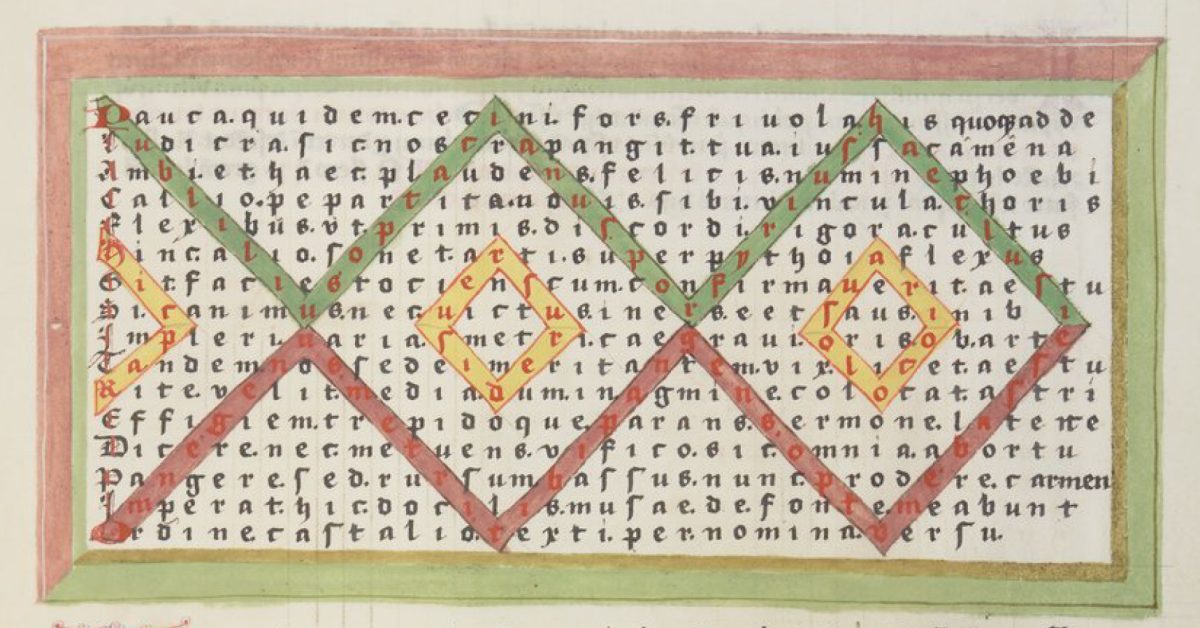 Pauca.quidem.cecini.fors.friuola.his quoqꝫ ad de
Ludicra.sic nostra pangit.tua.iussa camēna
Ambi.et.haec.plaudens.felicis.numine phoebi
Callio.pe partita.nouis.sibi.uincula.choris
Flexibus.vt primis.discordi.rigora.cultus
Hinc.alio.sonet.arti.super pythoia flexus
Sit facies totiens cum.confirmauerit.aestu
Di.canimus.nec uictus.iners.eet saus.inib
Impleri.uaria.smetri.cae graui.oris ob.arte
Tandem nossedei meritantem.vix licet.aestu
Rite.velit.mediadum.in agmine.colocatastri
Effigiem.trepidoque.parans.sermone.latente
Dicere.nec.metuens.vifico.sic.omnia.abortu
Pangere.sed.rursum bassus.nunc.prodere.carmen
Imperat.hic.docilis.musae.de.fonte.meabunt
Ordine.castalio.texti.per.nomina.versu.